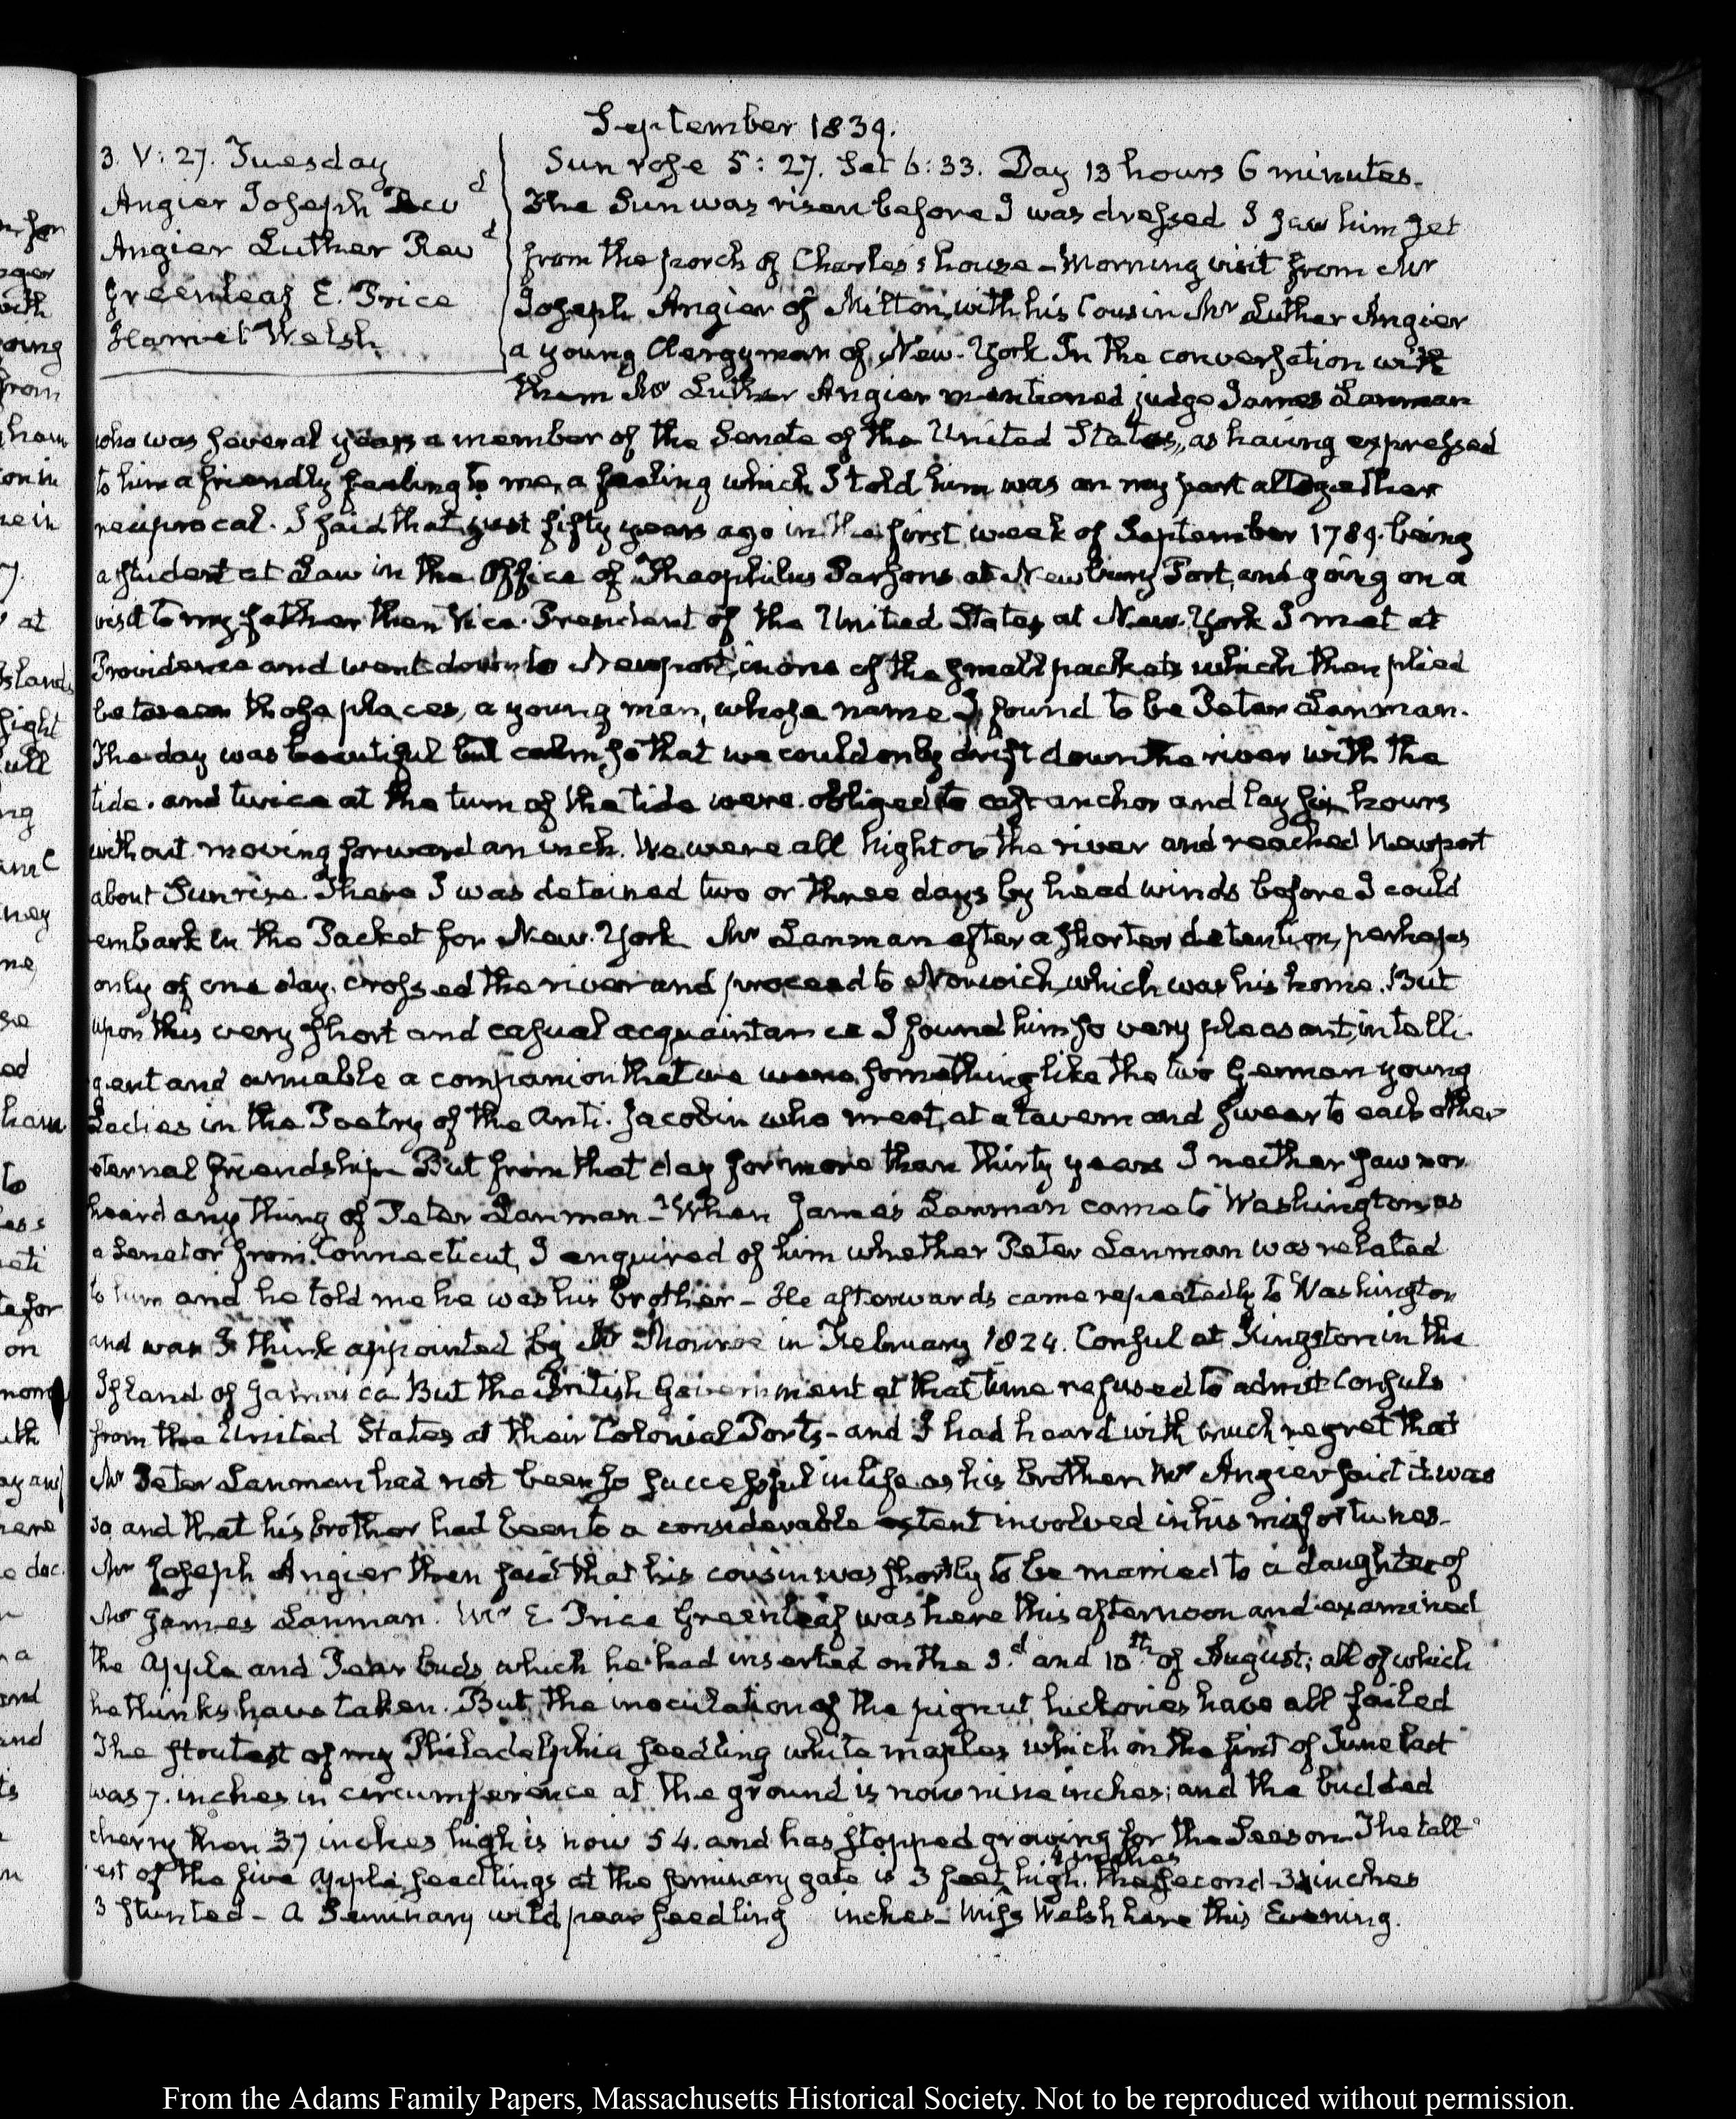 September 1839.
3. V: 27. Tuesday
Angier Joseph Revd
Angier Luther Revd
Greenleaf E. Price
Harriet Welsh
Sun rose 5: 27. Set 6: 33. Day 13 hours 6 minutes.
The Sun was risen before I was dressed I saw him set
from the porch of Charles's house – Morning visit from Mr
Joseph Angier of Milton, with his Cousin Mr Luther Angier
a young Clergyman of New-York In the conversation with
them Mr Luther Angier mentioned judge James Lanman
who was several years a member of the Senate of the United States, as having expressed
to him a friendly feeling to me, a feeling which I told him was on my part altogether
reciprocal. I said that just fifty years ago in the first week of September 1789. being
a student at Law in the Office of Theophilus Parsons at Newbury Port, and going on a
visit to my father then Vice-President of the United States at New-York I met at
Providence and went down to Newport, in one of the small packets which then plied
between those places, a young man, whose name I found to be Peter Lanman.
The day was beautiful but calm, so that we could only drift down the river with the
tide. and twice at the turn of the tide were obliged to cast anchor and lay six hours
without moving forward an inch. We were all Night on the river and reached Newport
about Sunrise. There I was detained two or three days by head winds before I could
embark in the Packet for New-York Mr Lanman after a shorter detention, perhaps
only of one day. crossed the river and proceed to Norwich, which was his home. But
upon this very short and casual acquaintance I found him so very pleasant, intelli-
gent and amiable a companion that we were something like the two German young
Ladies in the Poetry of the Anti-Jacobin who meet, at a tavern and swear to each other
eternal friendship – But from that day for more than thirty years I neither saw nor
heard any thing of Peter Lanman – When James Lanman came to Washington as
a Senator from Connecticut, I enquired of him whether Peter Lanman was related
to him and he told me he was his brother – He afterwards came repeatedly to Washington
and was I think appointed by Mr Monroe in February 1824. Consul at Kingston in the
Island of Jamaica But the British Government at that time refused to admit Consuls
from the United States at their Colonial Ports – and I had heard with much regret that
Mr Peter Lanman had not been so successful in life as his brother Mr Angier said it was
so and that his brother had been to a considerable extent involved in his misfortunes –
Mr Joseph Angier then said that his cousin was shortly to be married to a daughter of
Mr James Lanman. Mr E. Price Greenleaf was here this afternoon and examined
the Apple and Pear buds, which he had inserted on the 3d and 10th of August; all of which
he thinks have taken. But the inoculation of the pignut hickories have all failed
The stoutest of my Philadelphia seedling white maples which on the first of June last
was 7. inches in circumference at the ground is now nine inches; and the budded
cherry then 37 inches high is now 54. and has stopped growing for the Season. The tall-
est of the five apple seedlings at the seminary gate is 3 feet 4 inches high. the second 3 inches
3 stunted – A Seminary wild pear seedling inches – Miss Welsh here this Evening.
From the Adams Family Papers, Massachusetts Historical Society. Not to be reproduced without permission.